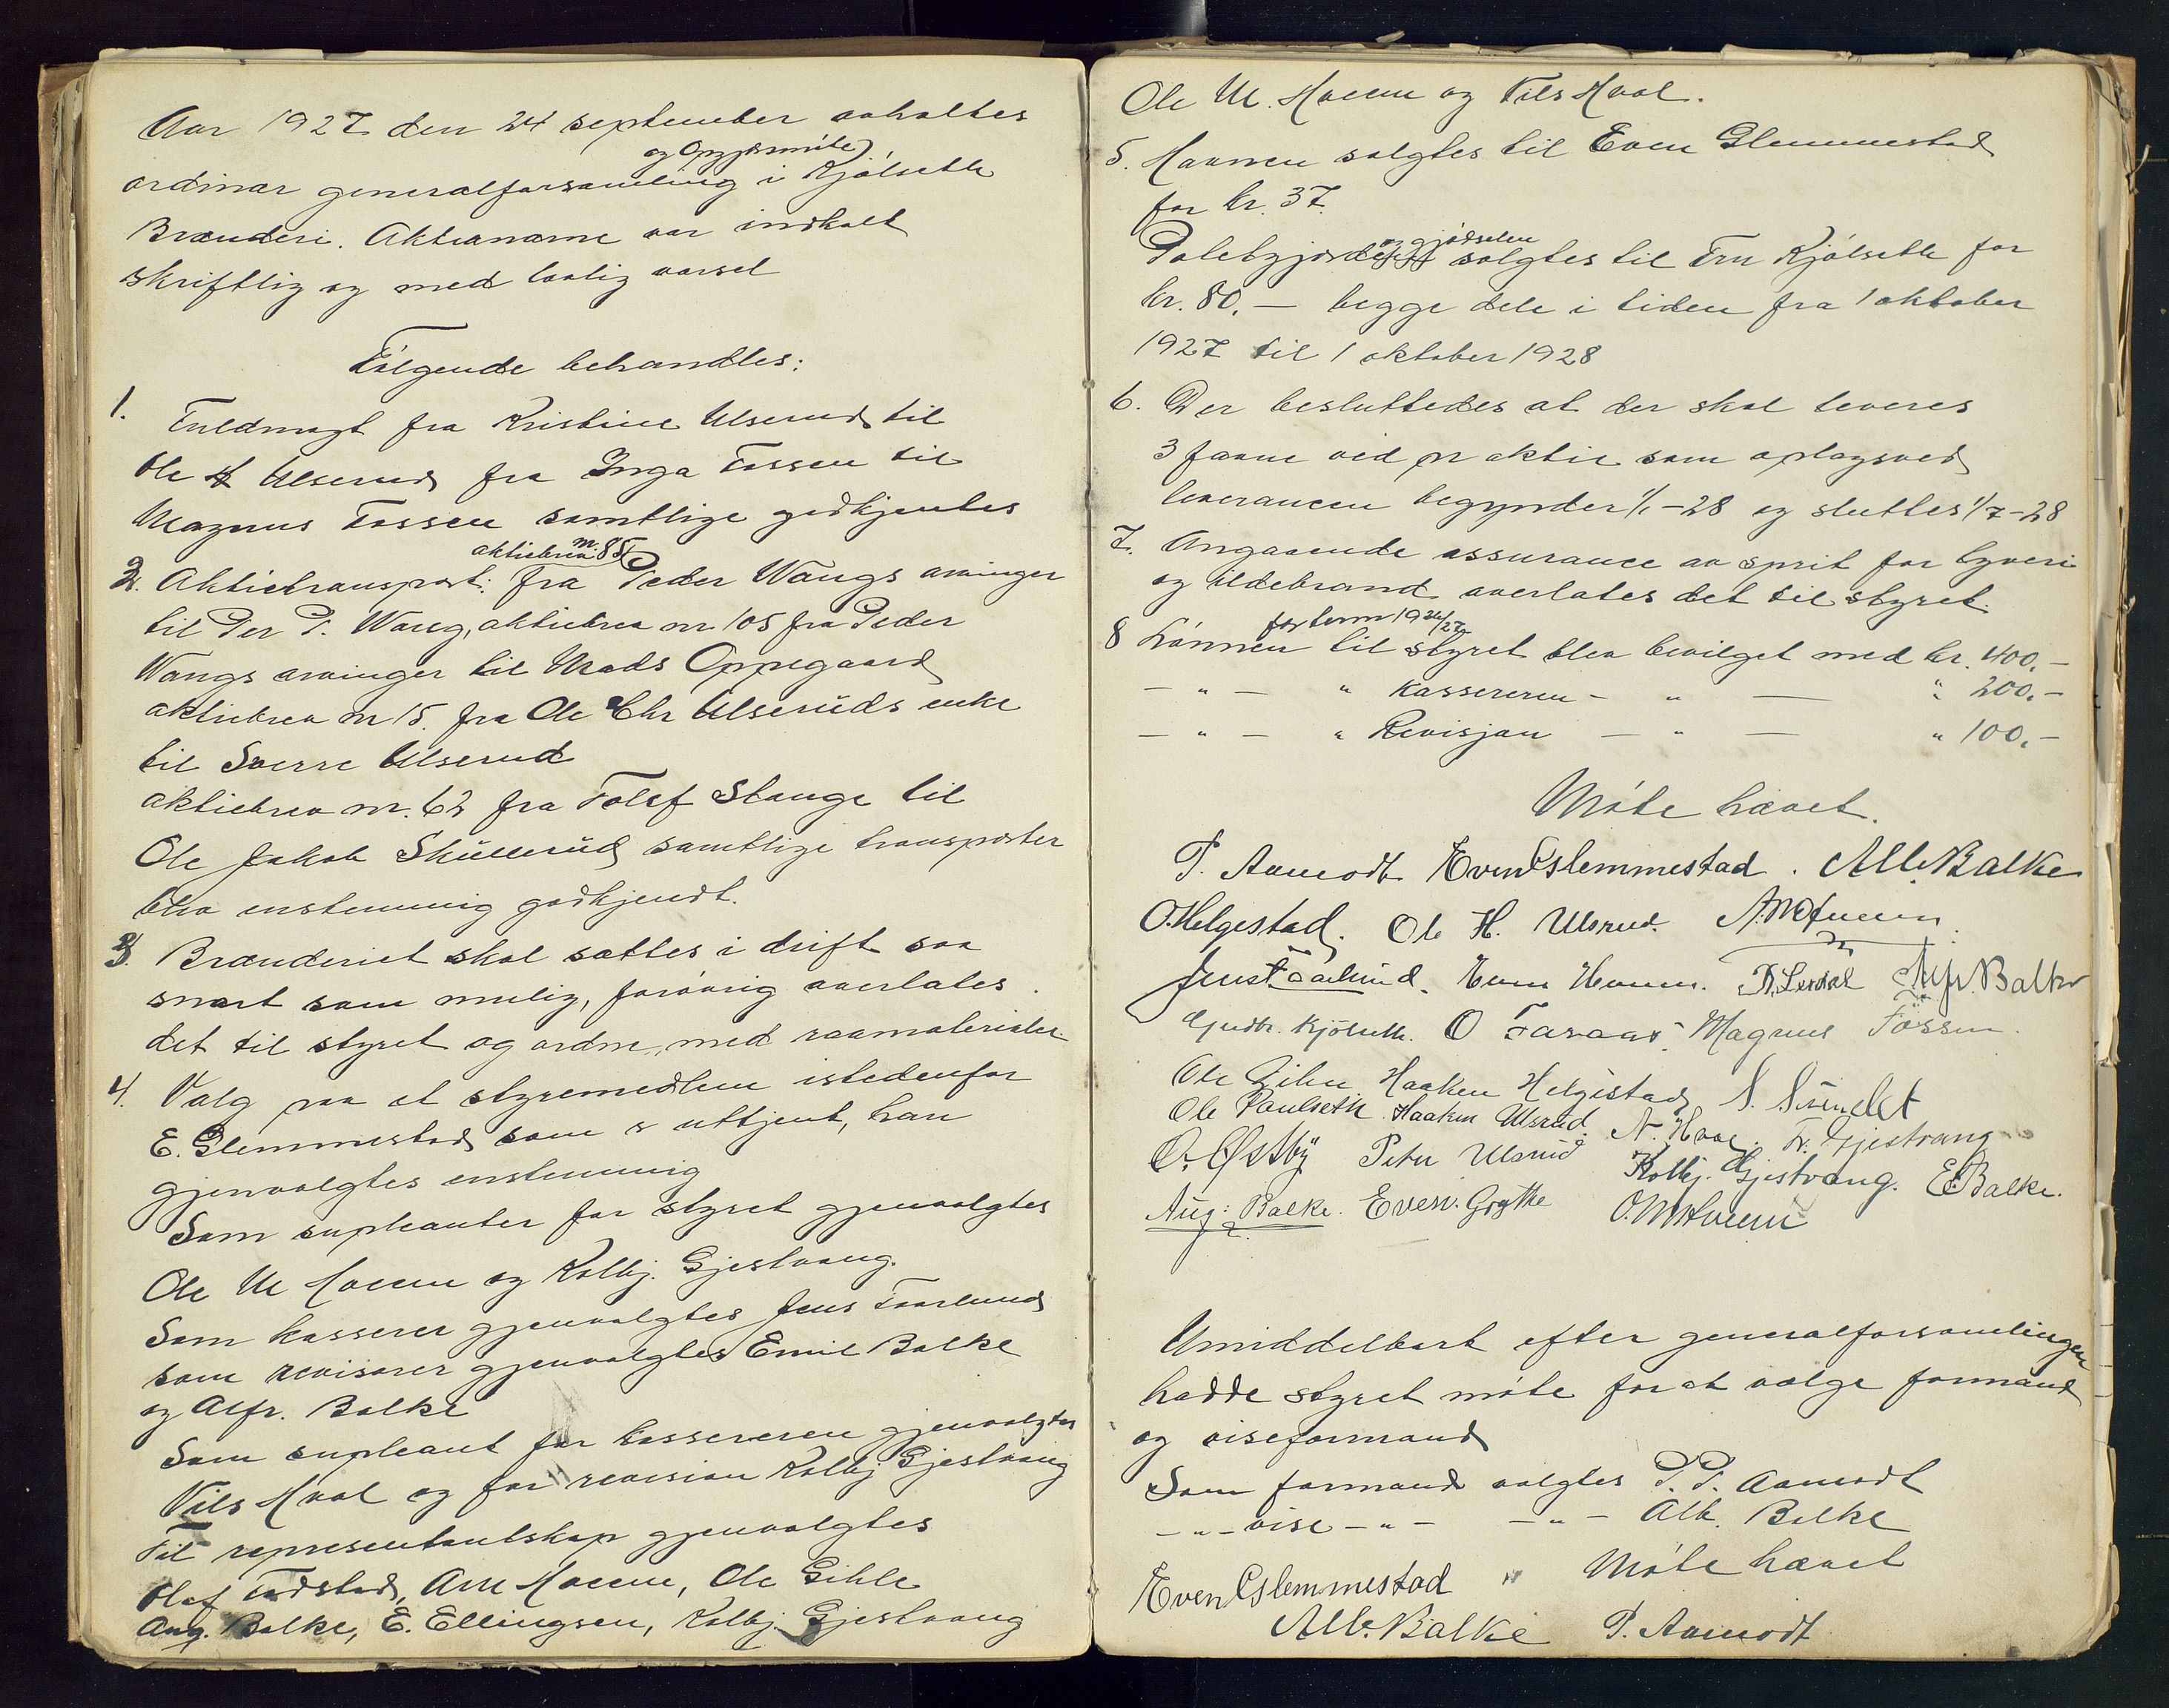 Aar 1927 den 24 september avholtes
og Opgjørsmøte
ordinær generalforsamling i Kjølseth
Brænderi. Aktionærne var indkalt
skriftlig og med lovlig varsel
Følgende behandles:
1. Fuldmagt fra Kristine Ulserud til
Ole H Ulserud fra Inga Fossen til
Magnus Fossen samtlige godkjentes
aktiebrev nr. 85
2. Aktietransport: fra Peder Wangs arvinger
til Per P. Wang, aktiebrev nr 105 fra Peder
Wangs arvinger til Mads Oppegaard
aktiebrev nr 15. fra Ole Chr Ulseruds enke
til Sverre Ulserud
aktiebrev nr. 62 fra Tolef Stange til
Ole Jakob Skullerud samtlige transporter
blev enstemmig godkjendt.
3. Brænderiet skal sættes i drift saa
snart som mulig, forøvrig overlates
det til styret og ordne med raamaterialer.
4. Valg paa et styremedlem istedenfor
E. Glemmestad som er uttjent, han
gjenvalgtes enstemmig
Som supleanter for styret gjenvalgtes
Ole M Hveem og Kolbj. Gjestvang.
Som kasserer gjenvalgtes Jens Faarlund
som revisorer gjenvalgtes Emil Balke
og Alfr. Balke
Som supleant for kassereren gjenvalgtes
Nils Hval og for revision Kolbj Gjestvang
Til representantskap gjenvalgtes
Olaf Fodstad, Arne Hveem, Ole Gihle
Aug. Balke, E. Ellingsen, Kolbj. Gjestvang
Ole M. Hveem og Nils Hval.
5. Havnen solgtes til Even Glemmestad
for kr. 37.
og gjødselen
Potetgjorden solgtes til Fru Kjølseth for
kr. 80.- begge dele i tiden fra 1 oktober
1927 til 1 oktober 1928
6. Der besluttedes at der skal leveres
3 favne ved pr aktie som oplagsved
leverancen begynder 1/1-28 og sluttes 1/7-28
7. Angaaende assurance av sprit for tyveri
og ildebrand overlates det til styret.
for term 1926/27
8 Lønnen til styret blev bevilget med kr. 400.-
- " - " Kassereren - " - " 200.-
- " - " Revisjon - " - " 100.-
Møte hævet.
P. Aamodt Even Glemmestad. Alb. Balke
O. Helgestad. Ole H. Ulsrud. A. M Hveem
Jens Faarlund. Even Hveem. Alfr. Balke
Gudbr. Kjølseth. O Faraas. Magnus Fossen.
Ole Gihle Haaken Helgestad
Ole Paulseth Haaken Ulsrud. N. Hval. Fr. Gjestvang
O. Østby Peter Ulsrud Kolbj. Gjestvang. E. Balke.
Aug: Balke. Even. Grythe O. M Hveem
Umiddelbart efter generalforsamlingen
hadde styret møte for at vælge formand
og viseformand
Som formand valgtes P. P. Aamodt
- " - vise - " - - " - Alb. Balke
Møte hævet
Even Glemmestad
Alb. Balke P. Aamodt